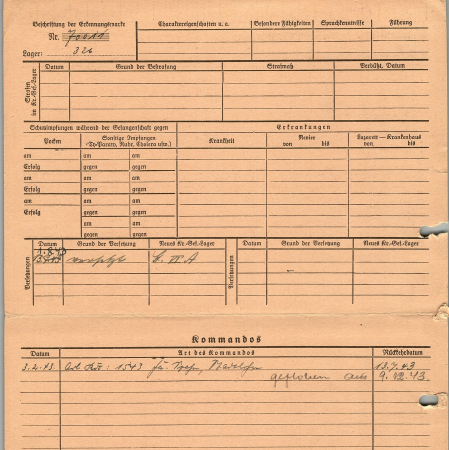 Beschriftung der Erkennungsmarke
Nr.
Lager: 326
Charaktereigenschaften u. a.
Besondere Fähigkeiten
Sprachkenntnisse
Führung
Strafen im Kr.-Gef.-Lager
Datum
Grund der Bestrafung
Strafmaß
Verbüßt, Datum
Schutzimpfungen während der Gefangenschaft gegen
Erkrankungen
Pocken
Sonstige Impfungen
(Ty-Paraty, Ruhr, Cholera usw.)
Krankheit
Revier
von bis
Lazarett — Krankenhaus
von bis
am am am
Erfolg gegen gegen
am am am
Erfolg gegen gegen
am am am
Erfolg gegen gegen
am am
gegen gegen
Versetzungen
Datum
Grund der Versetzung
Neues Kr.-Gef.-Lager
versetzt
VI A
Versetzungen
Datum
Grund der Versetzung
Neues Kr.-Gef.-Lager
Kommandos
Datum
Art des Kommandos
Rückkehrdatum
3.2.43
1543
13.7.43
geflohen am 9.12.43